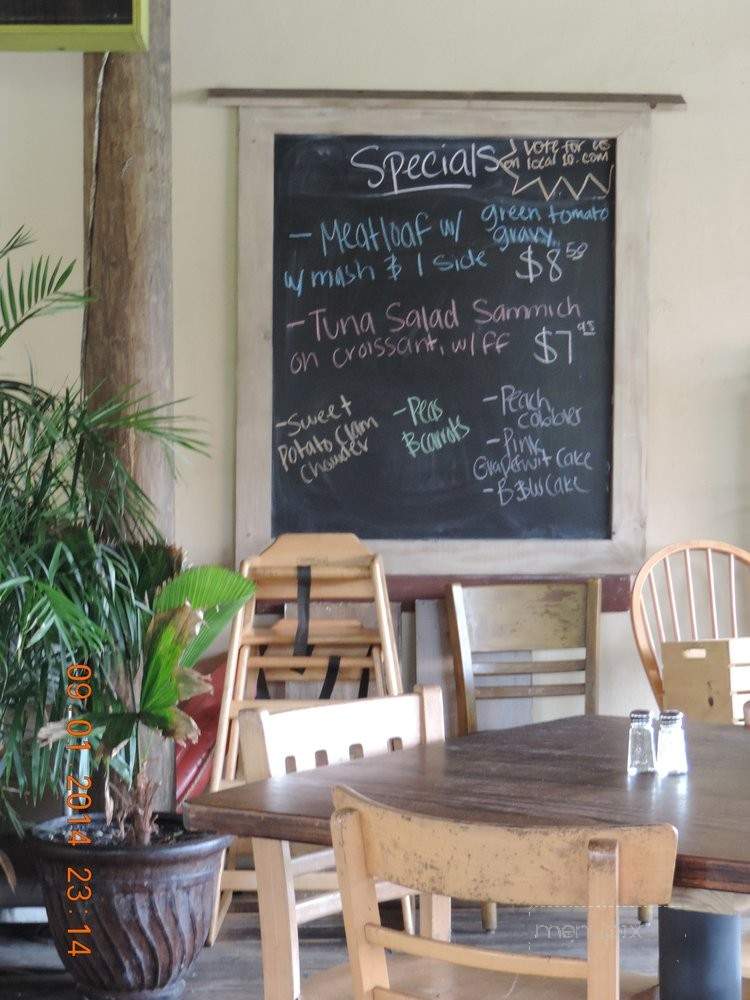 Specials
Vote for us
on local 10.com
- Meatloaf w/ green tomato
gravy
w/ mash & 1 side $8.50
- Tuna Salad Sammich
on croissant, w/ ff $7.95
- Sweet
Potato Clam
Chowder
- Peas
& carrots
- Peach
cobbler
- Pink
Grapefruit Cake
- B&W Cake
09.01.2014 23:14
menupix